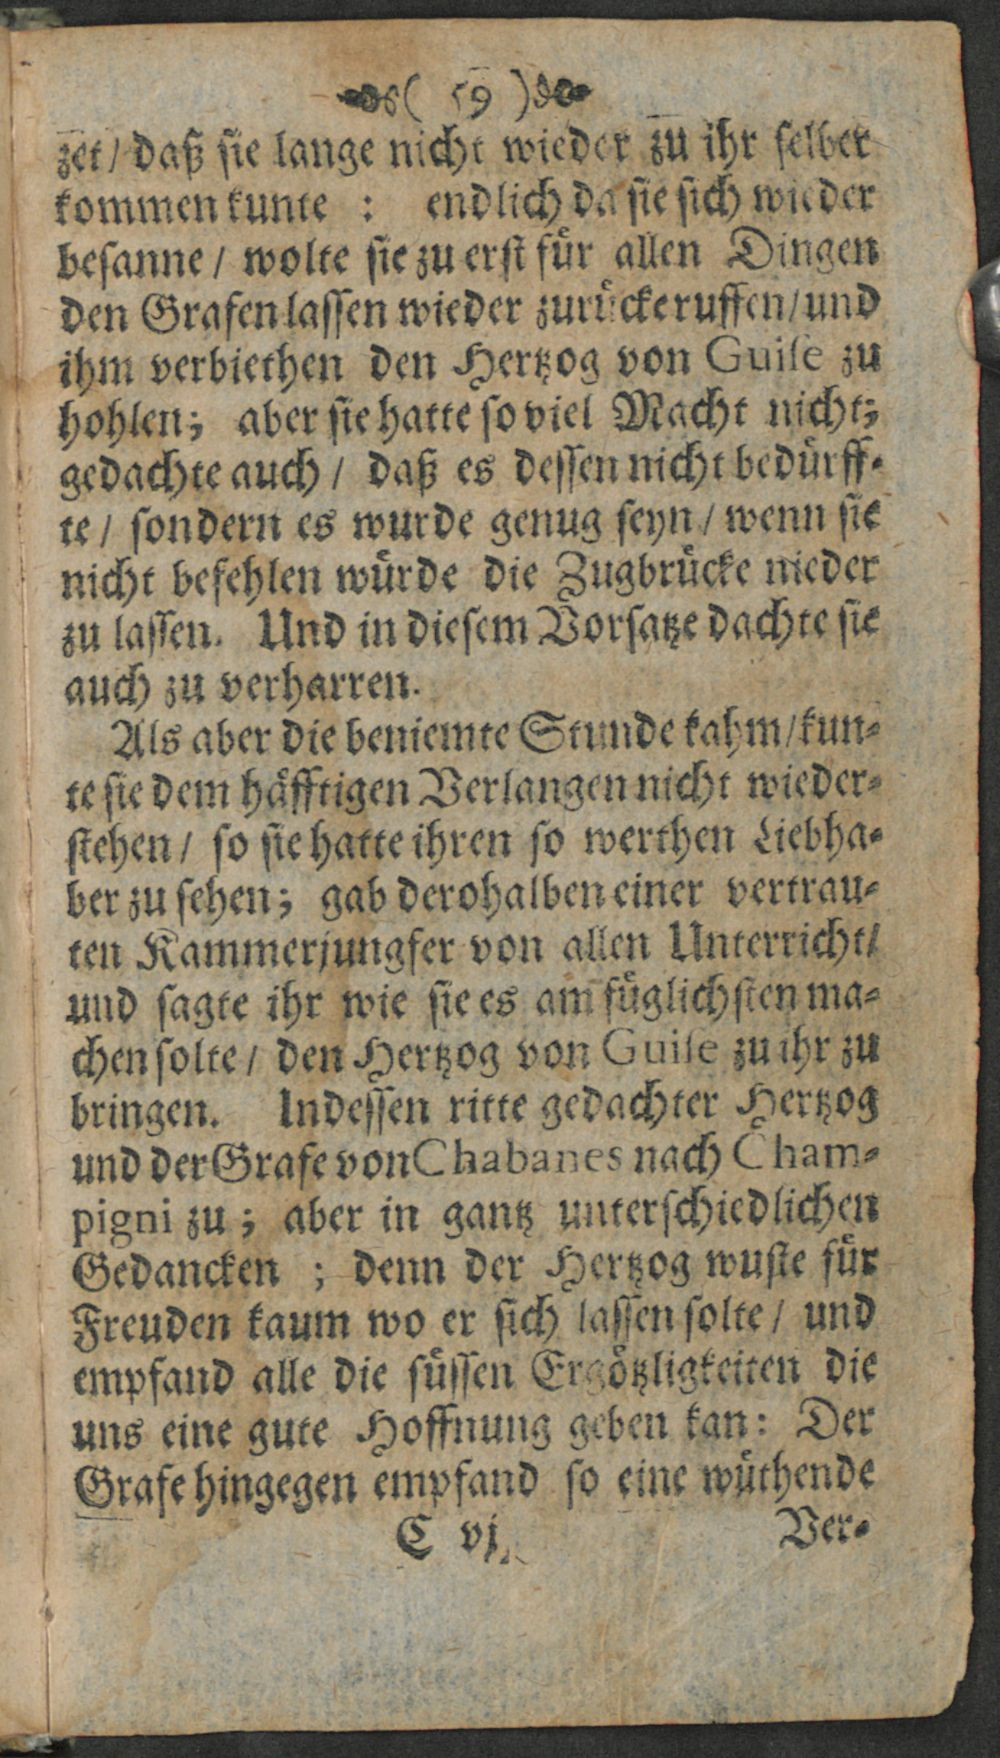 ( 59 )
zet / daß sie lange nicht wieder zu ihr selber
kommen kunte : endlich da sie sich wieder
besanne / wolte sie zu erst für allen Dingen
den Grafen lassen wieder zurückeruffen / und
ihm verbiethen den Hertzog von Guise zu
hohlen; aber sie hatte so viel Macht nicht;
gedachte auch / daß es dessen nicht bedürff-
te / sondern es wurde genug seyn / wenn sie
nicht befehlen würde die Zugbrücke nieder
zu lassen. Und in diesem Vorsatze dachte sie
auch zu verharren.
Als aber die beniemte Stunde kahm / kun-
te sie dem häfftigen Verlangen nicht wieder-
stehen / so sie hatte ihren so werthen Liebha-
ber zu sehen; gab derohalben einer vertrau-
ten Kammerjungfer von allen Unterricht /
und sagte ihr wie sie es am füglichsten ma-
chen solte / den Hertzog von Guise zu ihr zu
bringen. Indessen ritte gedachter Hertzog
und der Grafe von Chabanes nach Cham-
pigni zu; aber in gantz unterschiedlichen
Gedancken ; denn der Hertzog wuste für
Freuden kaum wo er sich lassen solte / und
empfand alle die süssen Ergötzligkeiten die
uns eine gute Hoffnung geben kan: Der
Grafe hingegen empfand so eine wüthende
C vj Ver-